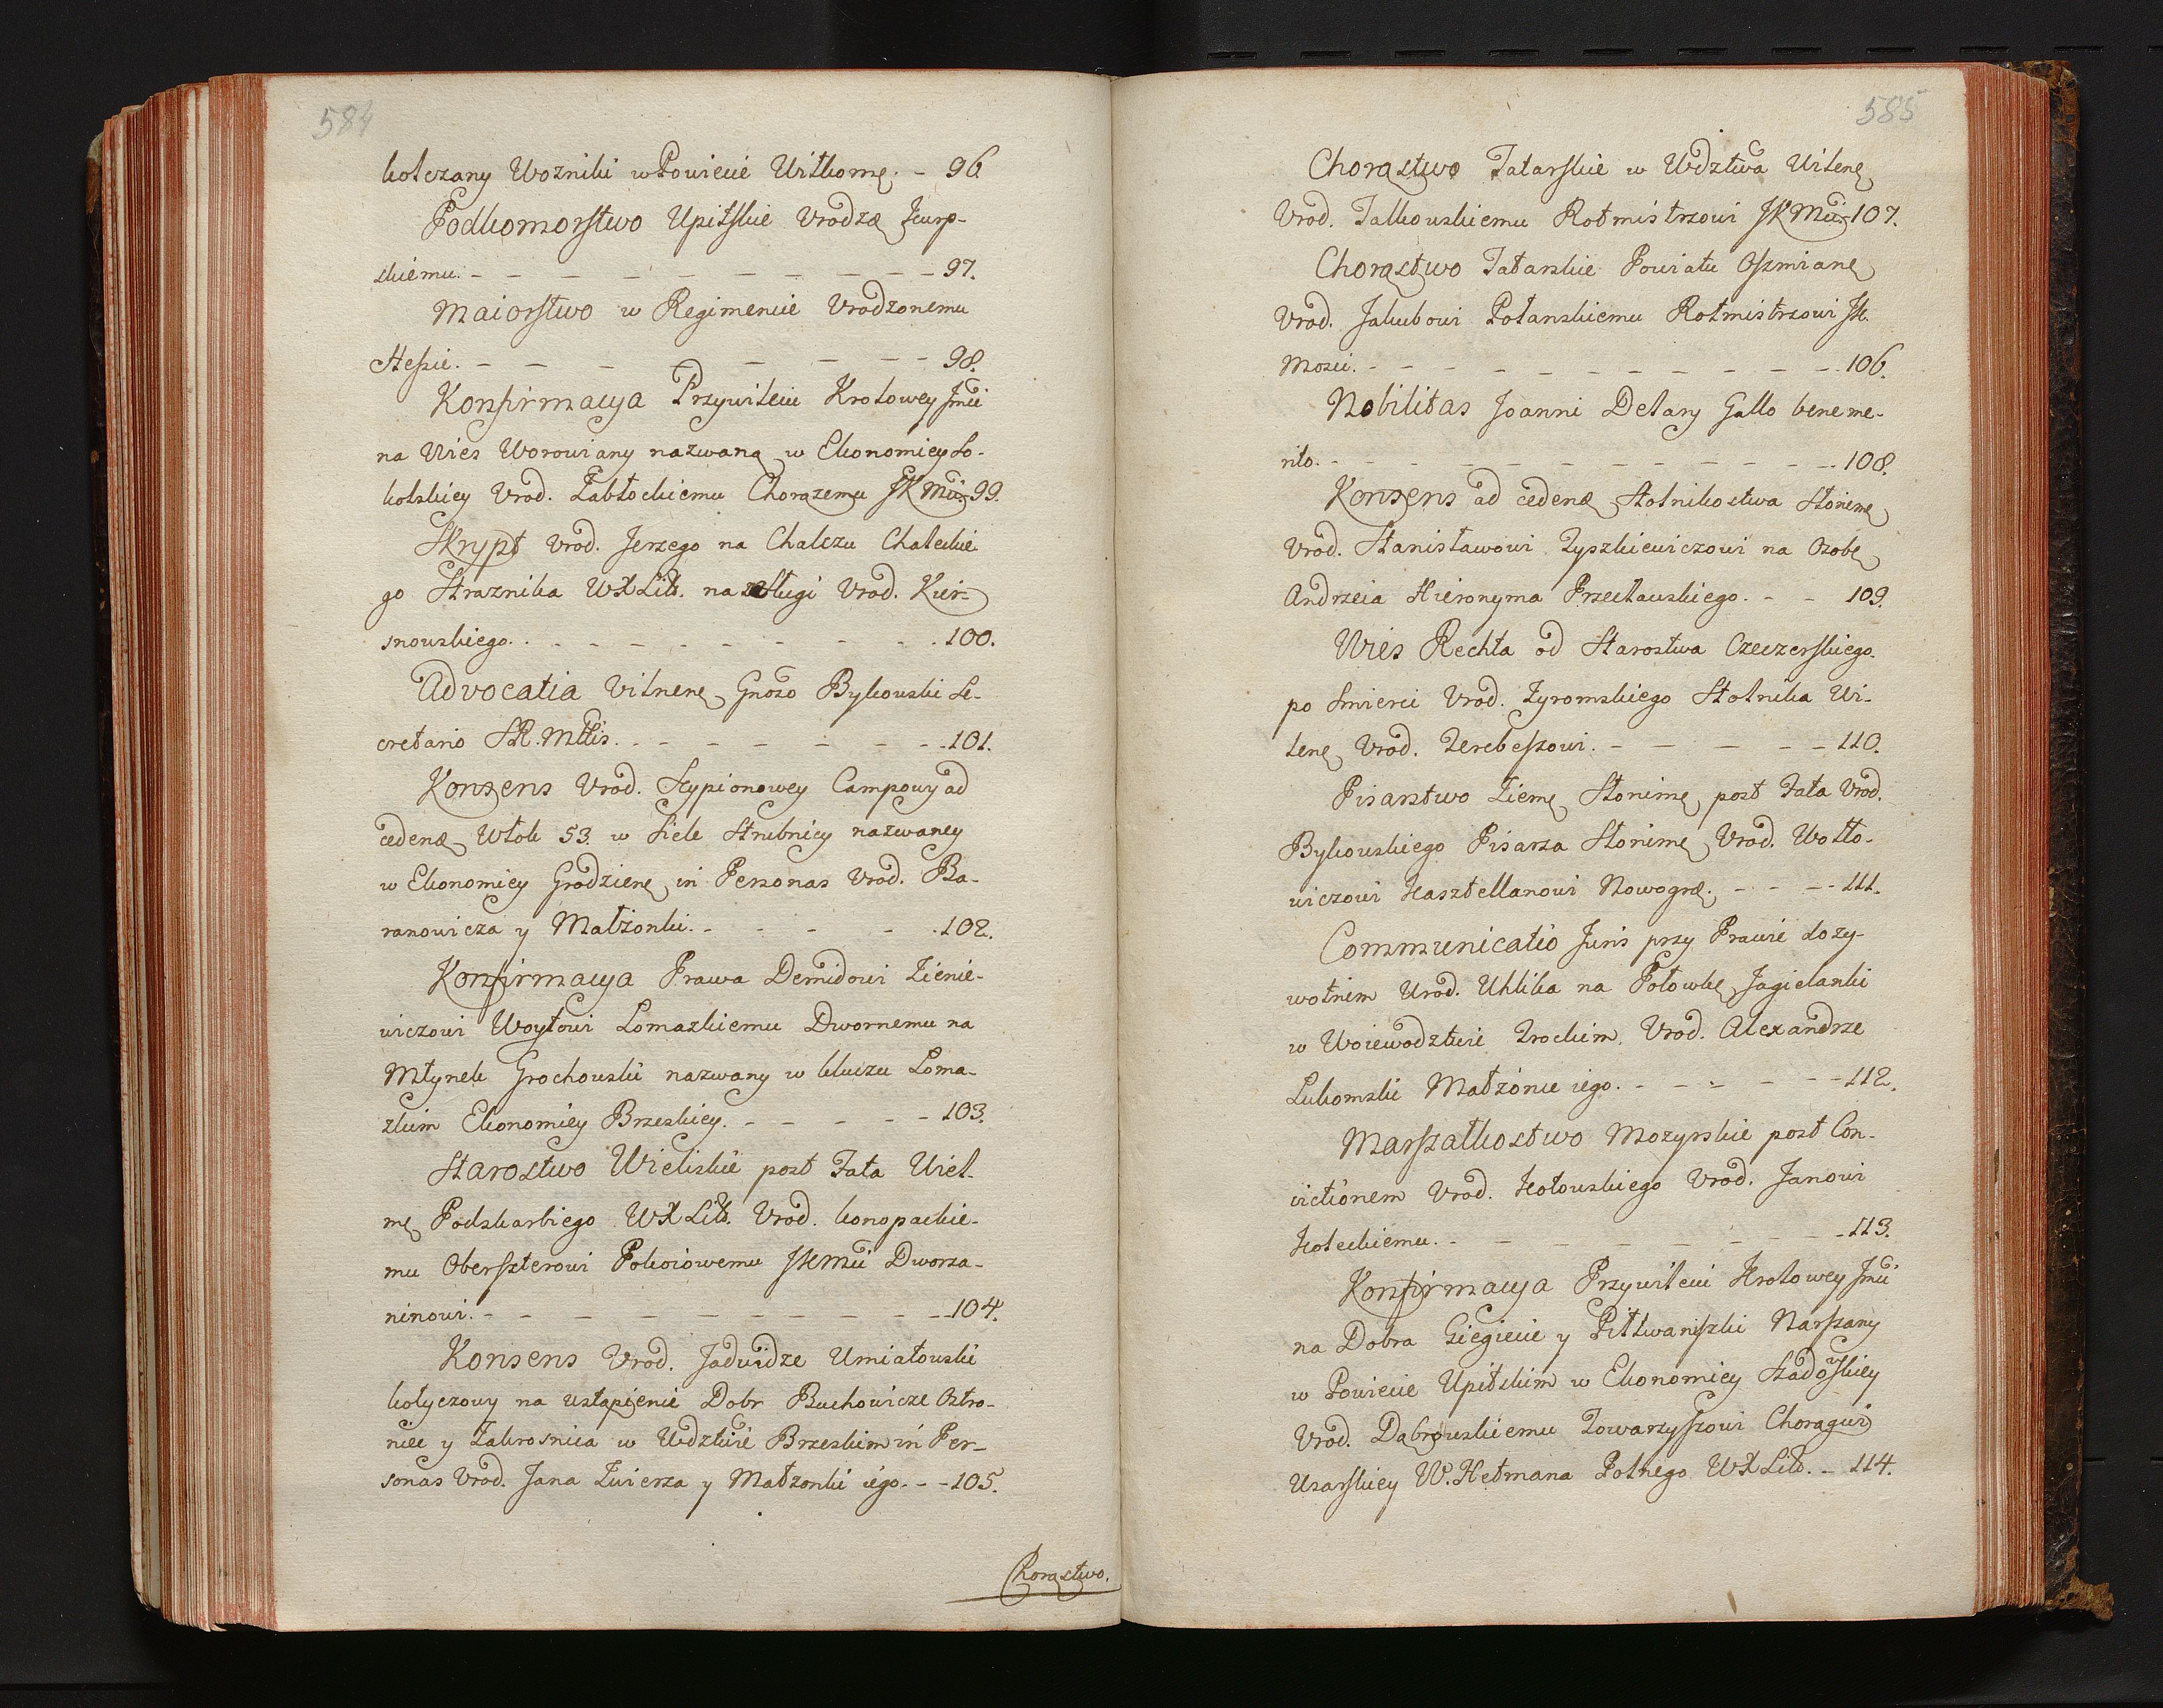 584
kolczany Wozniki w Powiecie Wilkomę. - 96
Podkomorstwo Upitskie Vrodzæ Karp-
skiemu. - 97.
Maiorstwo w Regimencie Vrodzonemu
Hessie. - 98.
Konfirmacya Przywileiu Krolowey Jmci
na Wies Worowiany nazwaną w Ekonomiey So-
kolskiey Vrod. Zabłockiemu Chorązemu JKMci 99.
Skrypt Vrod. Jerzego na Chalczu Chaleckie
go Straznika WXLitt. na Sługi Vrod. Kier-
snowskiego. - 100.
Advocatia Vilnenę Gnoso Bykowski Se-
cretario SR.Mttis. - 101.
Konsens Vrod. Scypionowey Campowy ad
cedenæ Włok 53. w Siele Strubnicy nazwaney
w Ekonomiey Grodzienę in Personas Vrod. Ba-
ranowicza y Małżonki. - 102.
Konfirmacya Prawa Demidowi Zienie-
wiczowi Woytowi Lomaskiemu Dwornemu na
Młynek Grochowski nazwany w kluczu Loma-
zkim Ekonomiey Brzeskiey. - 103.
Starostwo Wieliskie post Fata Wiel-
mę Podskarbiego WXLitt. Vrod. konopackie-
mu Oberszterowi Pokoiowemu JKMci Dworza-
ninowi. - 104.
Konsens Vrod. Jadwidze Umiatowski
kotyczowy na ustąpienie Dobr Buchowicze Ostro-
mecz y Zakrosnica w Wdztwie Brzeskim in Per-
sonas Vrod. Jana Zwierza y Małzonki iego. - 105.
Chorąstwo.
585
Chorąstwo Tatarskie w Wdztwa Wilenę
Vrod. Talkowskiemu Rotmistrzowi JKMci 107.
Chorąstwo Tatarskie Powiatu Oszmianę
Vrod. Jakubowi Połanskiemu Rotmistrzowi JK.
Mosci. - 106.
Nobilitas Joanni Delary Gallo beneme-
rito. - 108.
Konsens ad cedenæ Stolnikostwa Słonimę
Vrod. Stanisławowi Tyszkiewiczowi na Osobę
Andrzeia Hieronyma Przecławskiego. - 109.
Wies Rechta od Starostwa Czeczerskiego
po Smierci Vrod. Zyromskiego Stolnika Wi-
lenę Vrod. Terebeszowi. - 110.
Pisarstwo Ziemę Słonimę post Fata Vrod.
Bykowskiego Pisarza Słonimę Vrod. Wołło-
wiczowi Kasztellanowi Nowogræ. - 111.
Communicatio Juris przy Prawie dozy-
wotnim Urod. Uhlika na Połowkę Jagielanki
w Woiewodztwie Trockim Vrod. Alexandrze
Lukomski Małzónce iego. - 112.
Marszałkostwo Mozyrskie post Con-
victionem Vrod. Kotowskiego Vrod. Janowi
Koteckiemu. - 113.
Konfirmacya Przywileiu Krolowey Jmci
na Dobra Giegiecie y Pittwaniszki Narszany
w Powiecie Upitskim w Ekonomiey Szadowskiey
Vrod. Dąbrowskiemu Towarzyszowi Chorągwi
Usarskiey W. Hetmana Polnego WXLitt. - 114.